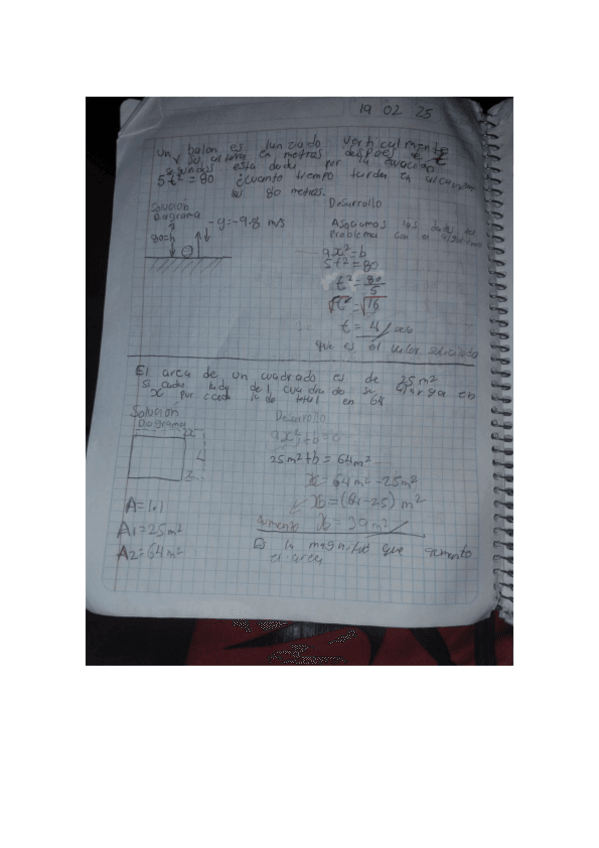 19 02 25
un balon es lanzado verticalmente
su altura en metros despues de t
segundos esta dada por la ecuacion
5t² = 80 ¿cuanto tiempo tarda en alcanzar
los 80 metros.
Solucion
Diagrama
80=h
-g=-9.8 m/s
Desarrollo
Asociamos los datos del
problema con el algoritmo
ax²=b
5t²=80
t²=80/5
√t²=√16
t = 4
que es el valor solicitado
El area de un cuadrado es de 25m²
si cada lado del cuadrado se alarga en
x por cada lado total en 64
Solucion
Diagrama
x
L
A= l×l
A1=25m²
A2=64m²
Desarrollo
ax²+b=c
25m²+b=64m²
x=64m²-25m²
xb=(64-25)m²
aumento x=39m²
Es la magnitud que aumento
el area